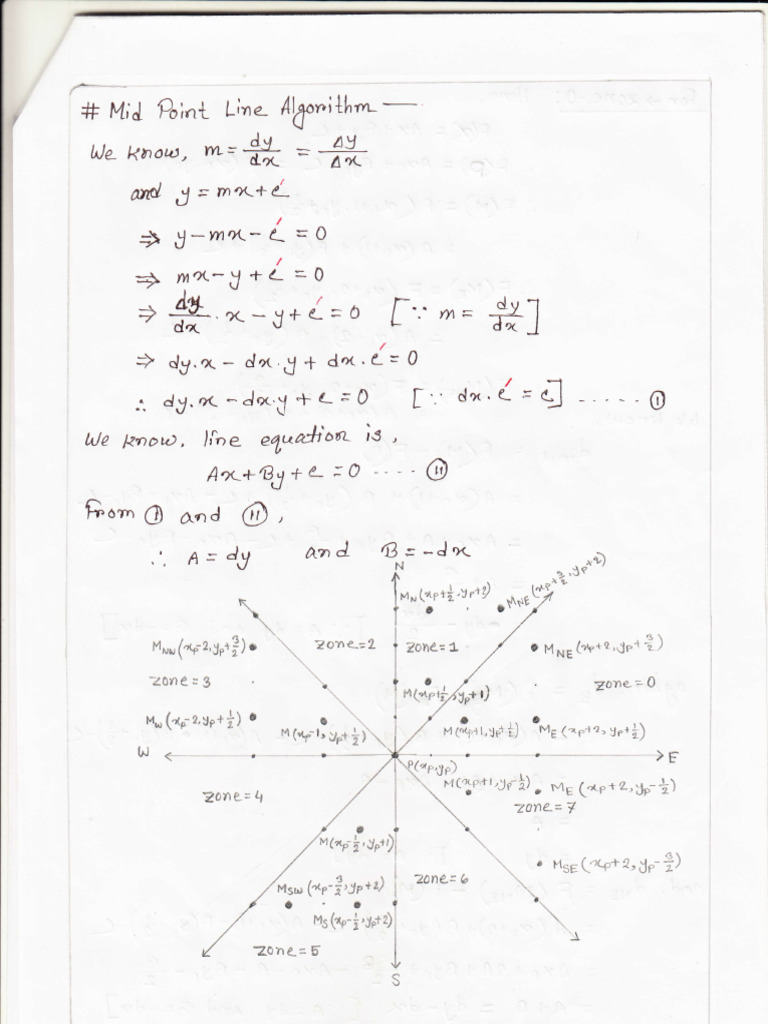 # Mid Point Line Algorithm —
We know, m = dy/dx = Δy/Δx
and y = mx + c′
⇒ y - mx - c′ = 0
⇒ mx - y + c′ = 0
⇒ dy/dx · x - y + c′ = 0 [∵ m = dy/dx]
⇒ dy.x - dx.y + dx.c′ = 0
∴ dy.x - dx.y + c = 0 [∵ dx.c′ = c] ...... (I)
We know, line equation is,
Ax + By + c = 0 ..... (II)
From (I) and (II),
∴ A = dy and B = -dx
N
M_N(xp+1/2, yp+2) M_NE(xp+3/2, yp+2)
M_NW(xp-2, yp+3/2) zone=2 zone=1 M_NE(xp+2, yp+3/2)
zone=3 M(xp+1/2, yp+1) zone=0
M_W(xp-2, yp+1/2) M(xp-1, yp+1/2) M(xp+1, yp+1/2) M_E(xp+2, yp+1/2)
W E
P(xp, yp)
zone=4 M(xp+1, yp-1/2) M_E(xp+2, yp-1/2)
zone=7
M(xp-1/2, yp+1) M_SE(xp+2, yp-3/2)
M_SW(xp-3/2, yp+2) zone=6
M_S(xp-1/2, yp+2)
zone=5
S